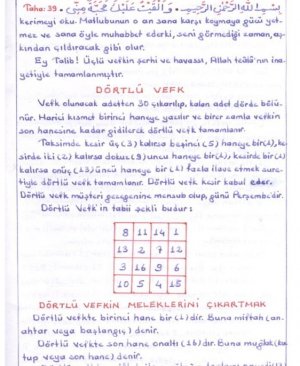 Taha: 39. بِسْمِ اللهِ الرَّحْمٰنِ الرَّحِيمِ. وَ اَلْقَيْتُ عَلَيْكَ مَحَبَّةً مِنِّى
kerimeyi oku. Matlubunun o an sana karşı koymaya gücü yet-
mez ve sana öyle muhabbet ederki, seni görmediği zaman, aş-
kından çıldıracak gibi olur.
Ey Talib! Üçlü vefkin şerhi ve havassı, Allah teâlâ'nın ina-
yetiyle tamamlanmıştır.
DÖRTLÜ VEFK
Vefk olunacak adetten 30 çıkarılıp, kalan adet dörde bölü-
nür. Harici kısmet birinci haneye yazılır ve birer zamla vefkin
son hanesine kadar gidilerek dörtlü vefk tamamlanır.
Taksimde kesir üç (3) kalırsa beşinci (5) haneye bir (1), ke-
sirde iki (2) kalırsa dokuz (9) uncu haneye bir (1), kesirde bir (1)
kalırsa onüç (13) üncü haneye bir (1) fazla ilave etmek sure-
tiyle dörtlü vefk tamamlanır. Dörtlü vefk kesir kabul eder.
Dörtlü vefk müşteri gezegenine mensub olup, günü Perşembe'dir.
Dörtlü Vefk'in tabii şekli budur:
8 11 14 1
13 2 7 12
3 16 9 6
10 5 4 15
DÖRTLÜ VEFKİN MELEKLERİNİ ÇIKARTMAK
Dörtlü vefkte birinci hane bir (1) dir. Buna miftah (an-
ahtar veya başlangıç) denir.
Dörtlü vefkte son hane onaltı (16) dır. Buna muğlak (ka-
tup veya son hane) denir.